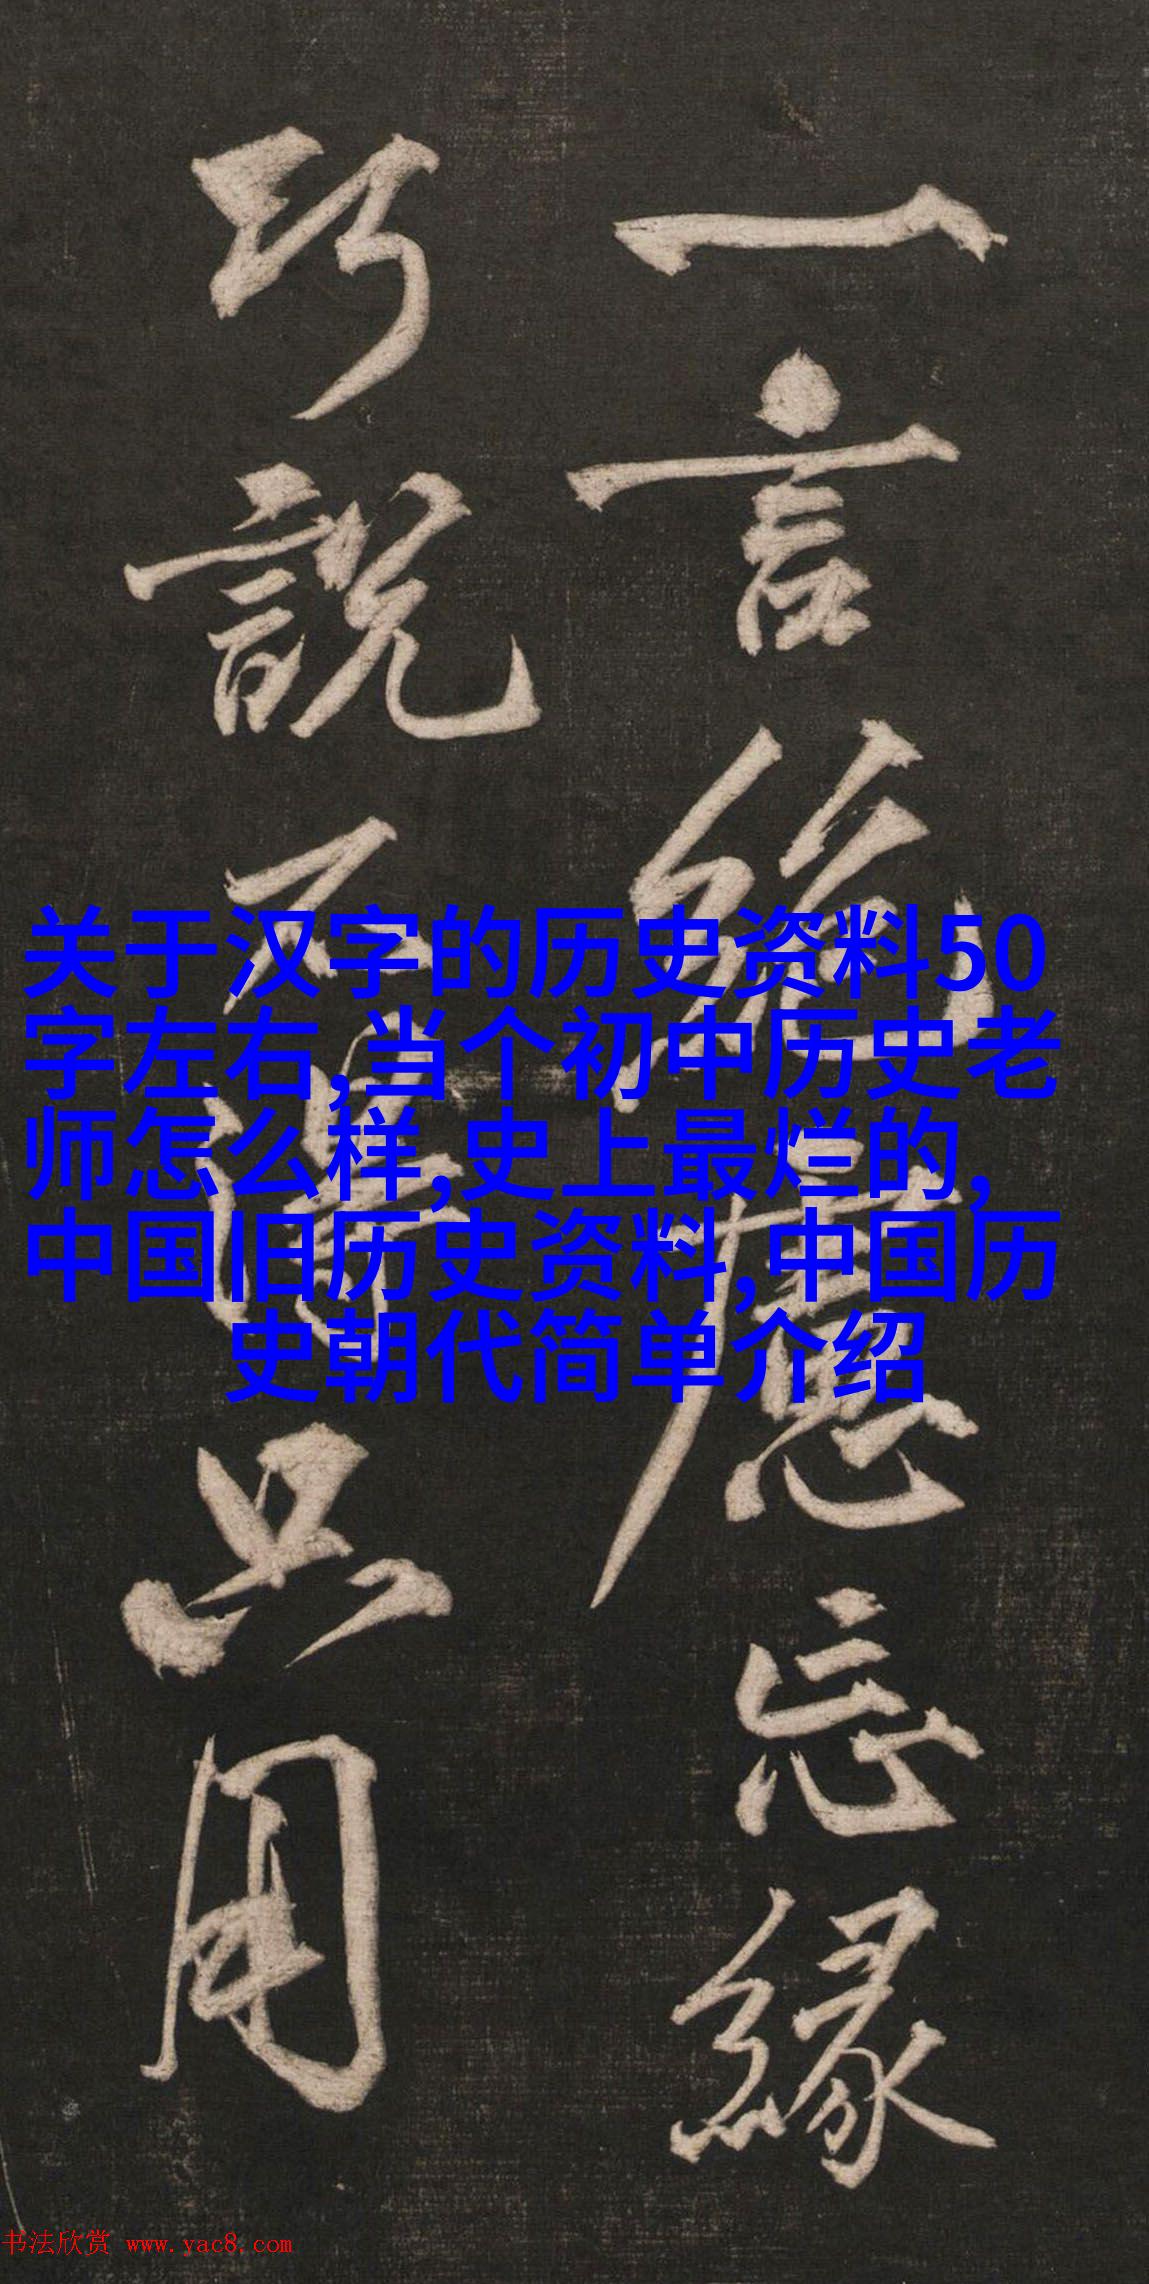 一言絶慮忘緣
巧說不得只用
关于汉字的历史资料50
字左右,当个初中历史老
师怎么样,史上最烂的,
中国旧历史资料,中国历
史朝代简单介绍
书法欣赏 www.yac8.com